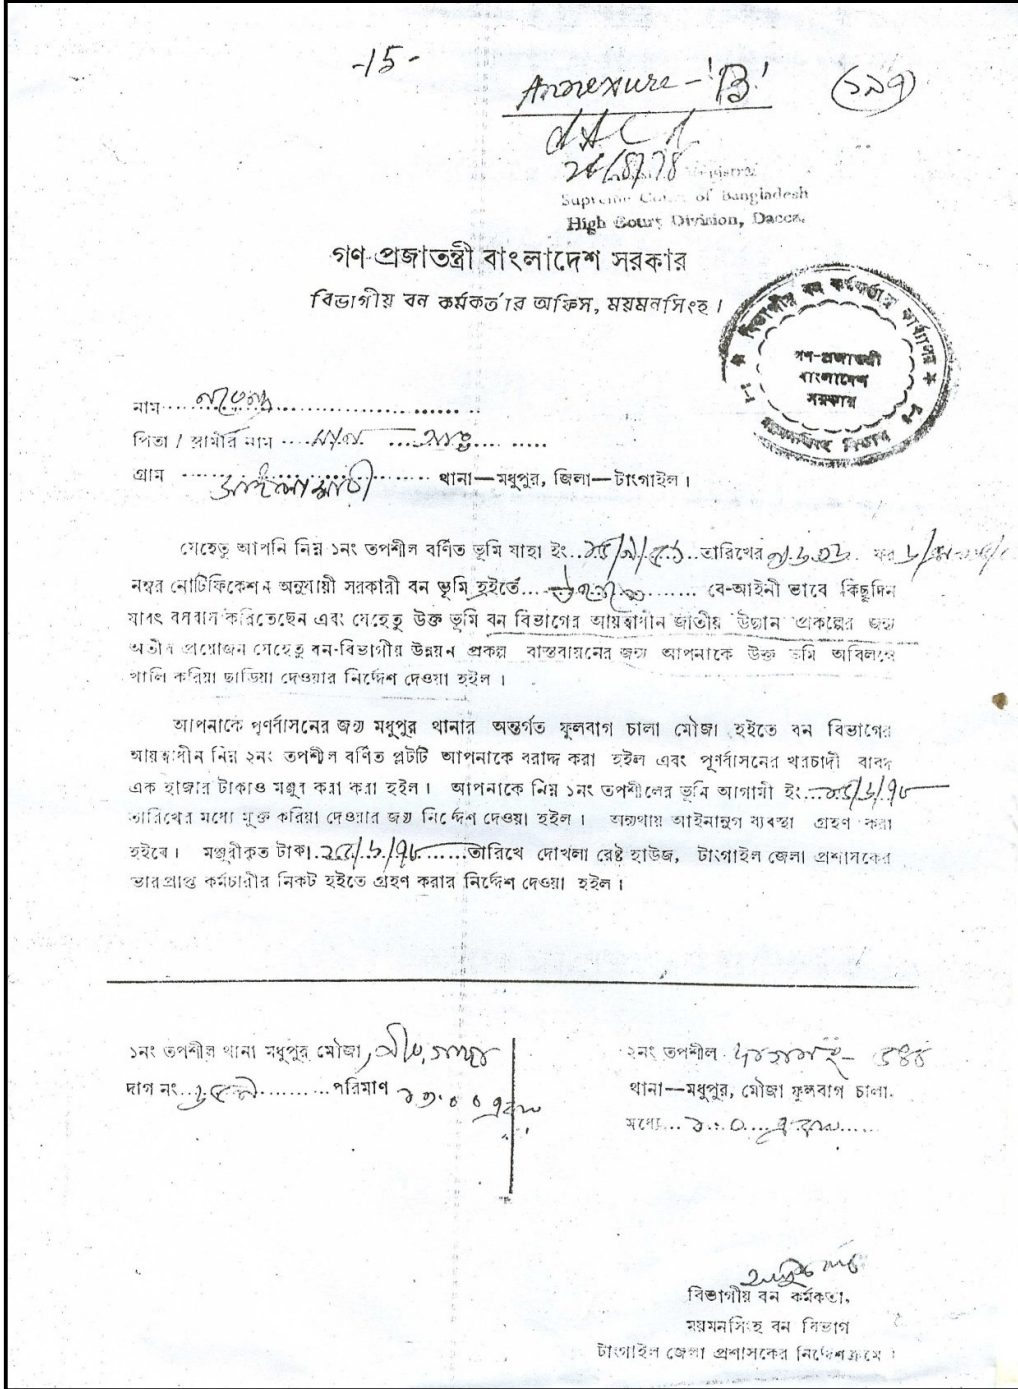 -15-
Annexure - 'B'
(১৯৭)
Supreme Court of Bangladesh
High Court Division, Dacca.
গণ-প্রজাতন্ত্রী বাংলাদেশ সরকার
বিভাগীয় বন কর্মকর্তার অফিস, ময়মনসিংহ।
বিভাগীয় বন কর্মকর্তার কার্যালয়
গণ-প্রজাতন্ত্রী
বাংলাদেশ
সরকার
ময়মনসিংহ বিভাগ
নাম
পিতা / স্বামীর নাম
গ্রাম থানা—মধুপুর, জিলা—টাংগাইল।
যেহেতু আপনি নিম্ন ১নং তপশীল বর্ণিত ভূমি যাহা ইং তারিখের
নম্বর নোটিফিকেশন অনুযায়ী সরকারী বন ভূমি হইতে বে-আইনী ভাবে কিছুদিন
যাবৎ বসবাস করিতেছেন এবং যেহেতু উক্ত ভূমি বন বিভাগের আয়ত্বাধীন জাতীয় উদ্যান প্রকল্পের জন্য
অতীব প্রয়োজন সেহেতু বন-বিভাগীয় উন্নয়ন প্রকল্প বাস্তবায়নের জন্য আপনাকে উক্ত ভূমি অবিলম্বে
খালি করিয়া ছাড়িয়া দেওয়ার নির্দ্দেশ দেওয়া হইল।
আপনাকে পূণর্বাসনের জন্য মধুপুর থানার অন্তর্গত ফুলবাগ চালা মৌজা হইতে বন বিভাগের
আয়ত্বাধীন নিম্ন ২নং তপশীল বর্ণিত প্লটটি আপনাকে বরাদ্দ করা হইল এবং পূণর্বাসনের খরচাদী বাবদ
এক হাজার টাকাও মঞ্জুর করা করা হইল। আপনাকে নিম্ন ১নং তপশীলের ভূমি আগামী ইং ২৫/৬/৭৮
তারিখের মধ্যে মুক্ত করিয়া দেওয়ার জন্য নির্দ্দেশ দেওয়া হইল। অন্যথায় আইনানুগ ব্যবস্থা গ্রহণ করা
হইবে। মঞ্জুরীকৃত টাকা ২৫/৬/৭৮ তারিখে দোখলা রেষ্ট হাউজ, টাংগাইল জেলা প্রশাসকের
ভারপ্রাপ্ত কর্মচারীর নিকট হইতে গ্রহণ করার নির্দ্দেশ দেওয়া হইল।
১নং তপশীল থানা মধুপুর মৌজা
দাগ নং পরিমাণ
২নং তপশীল
থানা—মধুপুর, মৌজা ফুলবাগ চালা.
মধ্যে ১.০ একর
বিভাগীয় বন কর্মকর্তা,
ময়মনসিংহ বন বিভাগ
টাংগাইল জেলা প্রশাসকের নির্দ্দেশক্রমে।